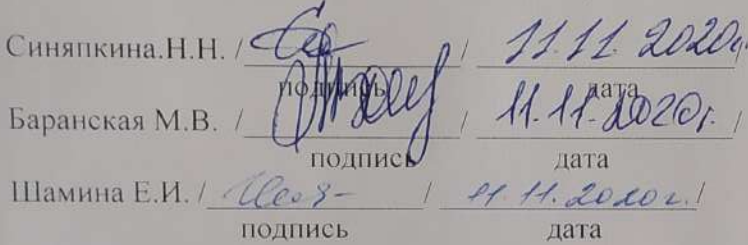 Синяпкина.Н.Н. / / 11.11.2020г. /
подпись дата
Баранская М.В. / / 11.11.2020г. /
подпись дата
Шамина Е.И. / / 11.11.2020г. /
подпись дата